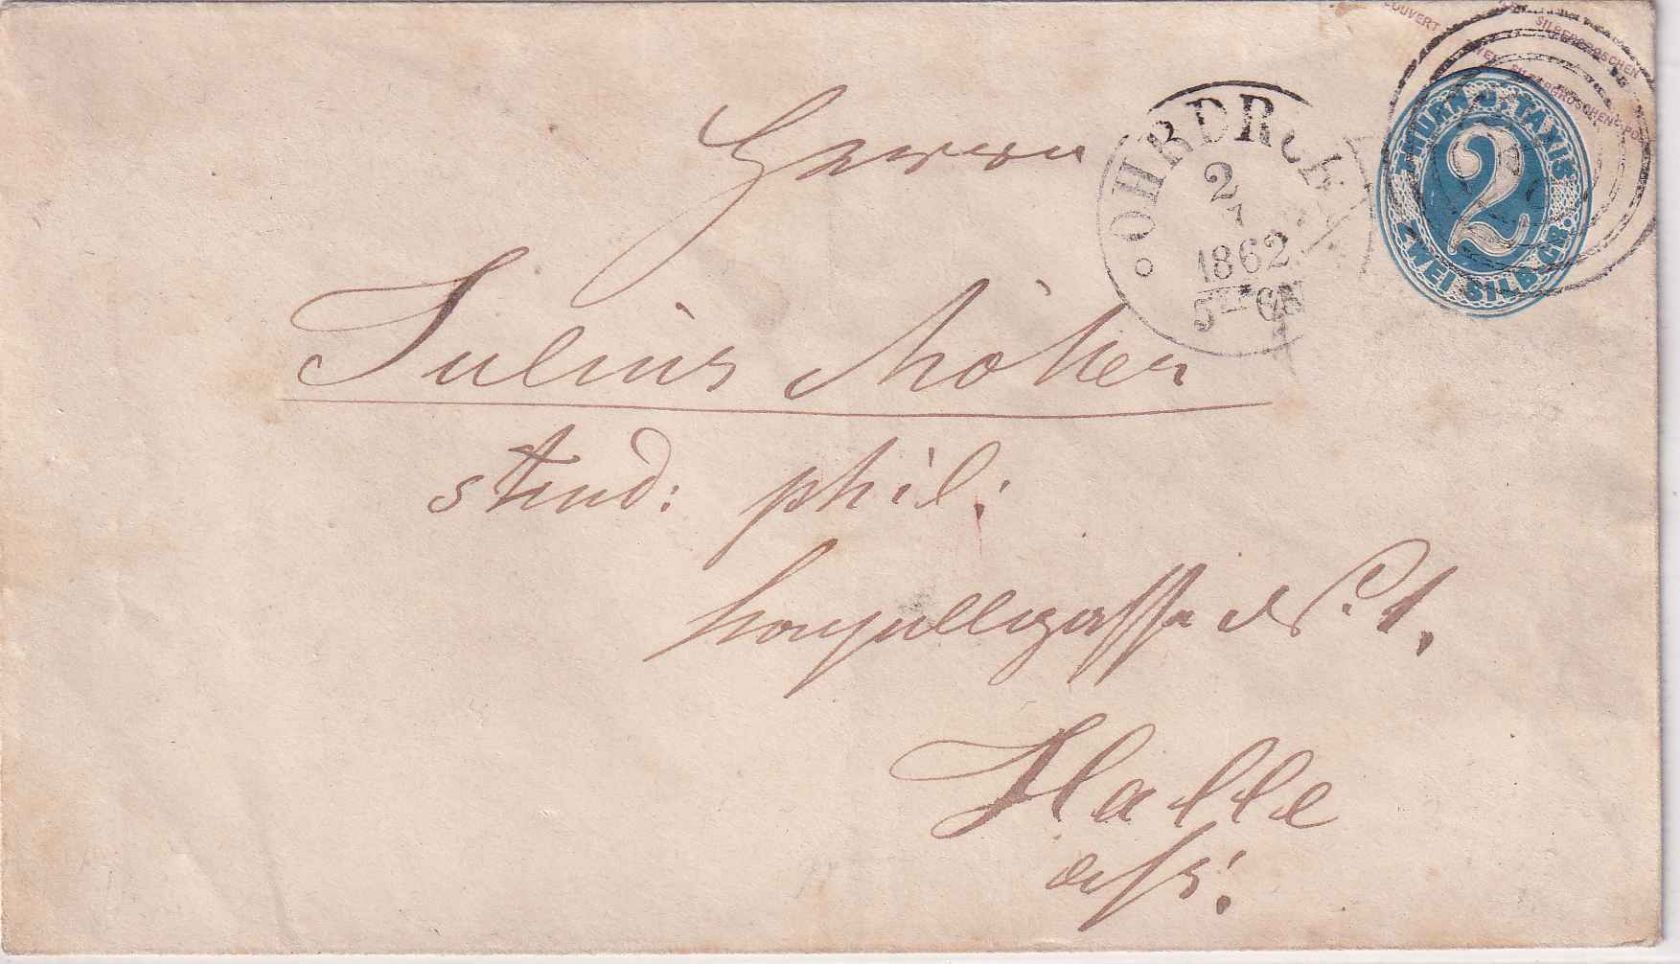 SILBERGROSCHEN
COUVERT
SILBERGROSCHEN
THURN U. TAXIS
2
ZWEI SILB. GR.
OHRDRUF
2
7
1862
Herrn
Julius
stud: phil:
No. 1.
Halle
a/S.